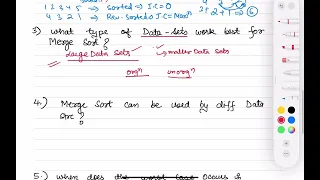 1 2 3 4 5 → Sorted → IC = 0
4 3 2 1 → Rev-Sorted → IC = Max
3) What type of Data-Sets work best for
Merge Sort?
Large Data Sets
smaller Data Sets
4.) Merge Sort can be used by diff Data
Src?
5.) When does the worst Case occurs in